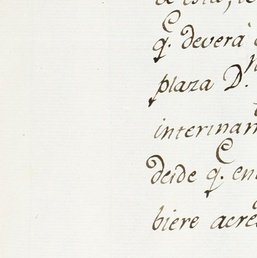 q.e deverá
plaza D.n
interinam
desde q.e en
biere acre